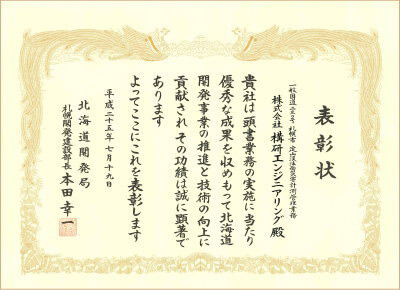 表彰状
一般国道230号 札幌市 定山渓法面変状計測管理業務
株式会社 構研エンジニアリング 殿
貴社は頭書業務の実施に当たり
優秀な成果を収めもって北海道
開発事業の推進と技術の向上に
貢献されその功績は誠に顕著で
あります
よってここにこれを表彰します
平成二十五年七月十九日
北海道開発局
札幌開発建設部長 本田幸一